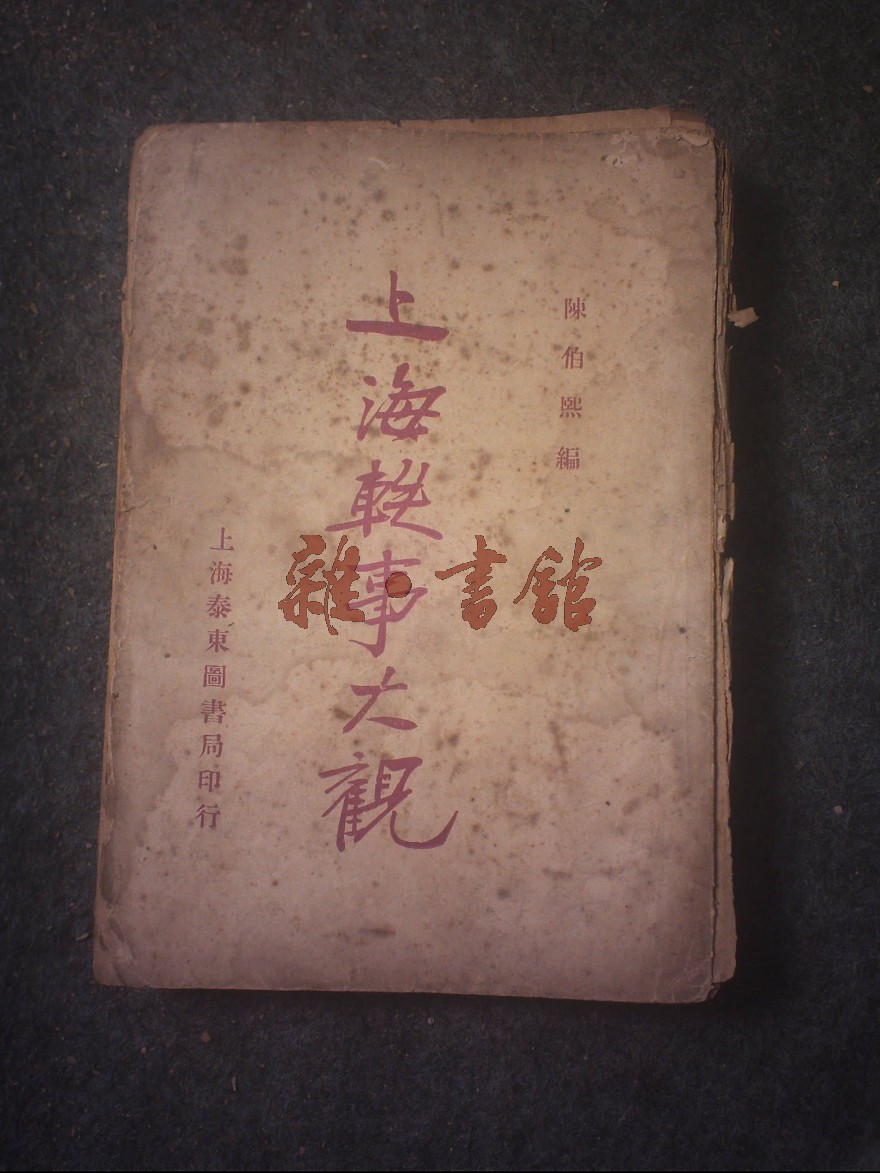 陳伯熙編
上海軼事大觀
上海泰東圖書局印行
雜·書館